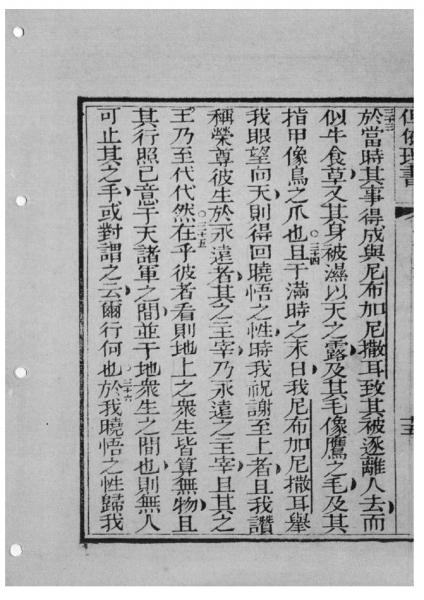 但依理書
十五
三十三
於當時其事得成與尼布加尼撒耳致其被逐離人去而
似牛食草又其身被濕以天之露及其毛像鷹之毛及其
指甲像鳥之爪也○三十四且于滿時之末日我尼布加尼撒耳舉
我眼望向天則得回曉悟之性時我祝謝至上者且我讚
稱榮尊彼生於永遠者其之主宰乃永遠之主宰且其之
王乃至代代然在乎彼者看則地上之衆生皆算無物且
○三十五
其行照己意于天諸軍之間並于地衆生之間也則無人
可止其之手或對謂之云爾行何也○三十六於我曉悟之性歸我